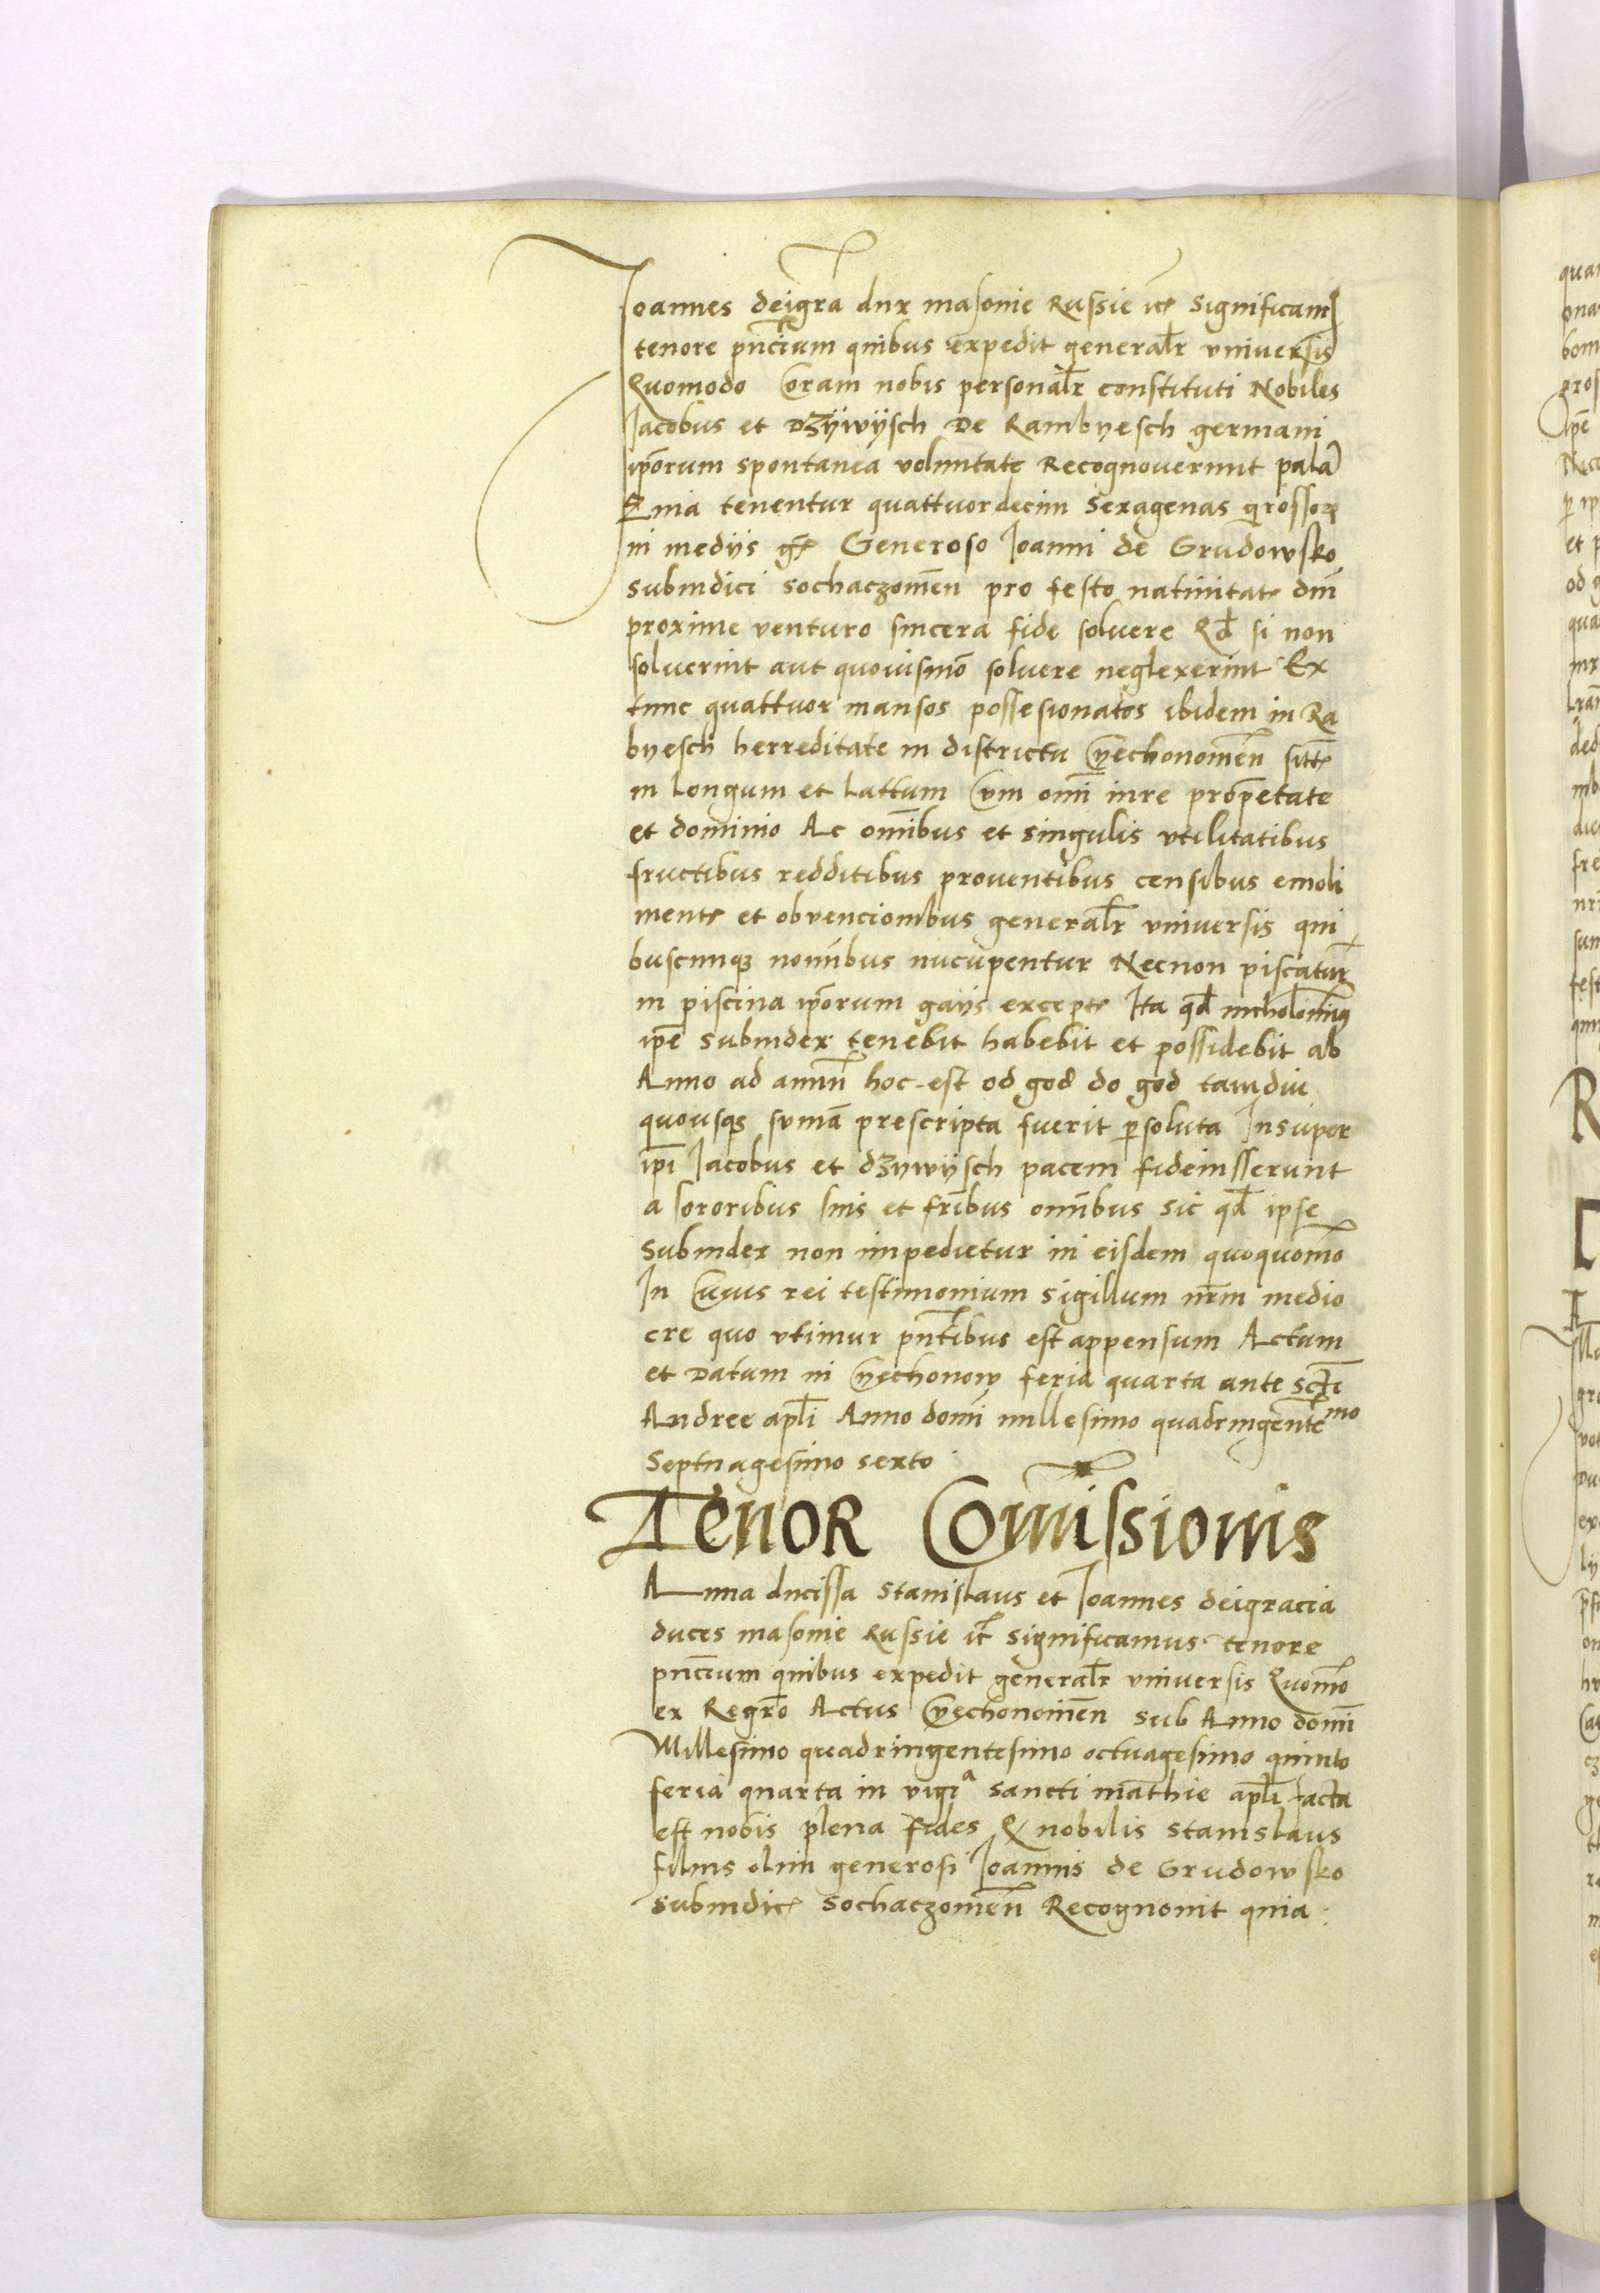 Joannes deigra dux masouie Russie etc Significam9
tenore pncium quibus expedit generalr vniuersis
Quomodo Coram nobis personalr constituti Nobiles
Jacobus et Dzÿwÿsch De Rambyesch germani
iporum spontanea voluntate Recognouerunt pala
Quia tenentur quattuordecim Sexagenas grossor
in medijs Generoso Joanni de Grudowsko
Subiudici Sochaczouien pro festo natiuitat dni
proxime venturo sincera fide soluere Qd si non
soluerint aut quouismo soluere neglexerint Ex
tunc quattuor mansos possesionatos ibidem in Ra
byesch herreditate in districtu Cyechonouien sitt
in Longum et Lattum Cum omi iure propetate
et dominio Ac omibus et singulis vtilitatibus
fructibus redditibus prouentibus censibus emoli
ment et obvencionibus generalr vniuersis qui
buscunq nomibus nucupentur Necnon piscatur
in piscina iporum gaijs except Ita qd
ipe Subiudex tenebit habebit et possidebit ab
Anno ad annu hoc est od god do god tamdiu
quousq suma prescripta fuerit psoluta Insuper
ipi Jacobus et dzywÿsch pacem fideiusserunt
a sororibus suis et fribus omibus Sic qd ipse
Subiudex non impedietur in eisdem quoquomo
In Cuius rei testimonium Sigillum nrm medio
cre quo vtimur pntibus est appensum Actum
et Datum in Cyechonow feria quarta ante scti
Andree apli Anno domi millesimo quadringentemo
Septuagesimo sexto
Tenor Comissionis
Anna ducissa Stanislaus et Joannes deigracia
duces masouie Russie etc Significamus tenore
pncium quibus expedit generalr vniuersis Quomo
ex Regro Actus Cyechonouien Sub Anno domi
Millesimo quadringentesimo octuagesimo quinto
feria quarta in vigia Sancti mathie apli facta
est nobis plena fides Q nobilis Stanislaus
filius olim generosi Joannis de Grudowsko
Subiudic Sochaczouien Recognouit quia